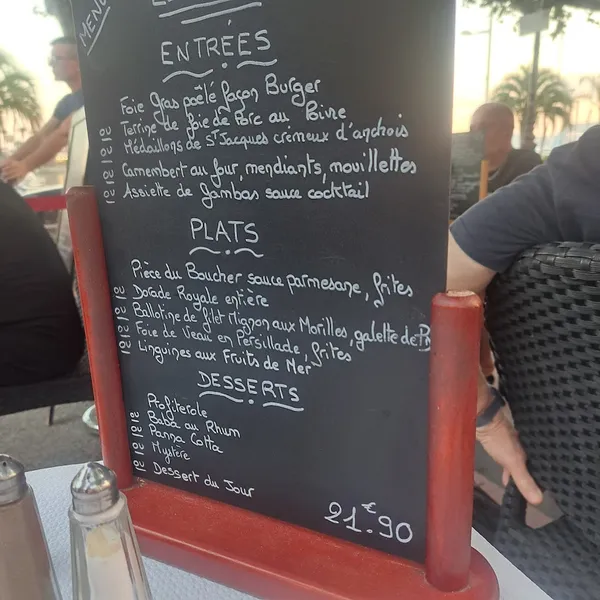 MENU
ENTRÉES
Foie Gras poêlé façon Burger
ou Terrine de foie de Porc au Poivre
ou Médaillons de St Jacques crémeux d'anchois
ou Camembert au four, mendiants, mouillettes
ou Assiette de Gambas sauce cocktail
PLATS
Pièce du Boucher sauce parmesane, frites
ou Dorade Royale entière
ou Ballotine de filet Mignon aux Morilles, galette de
ou Foie de Veau en Persillade, frites
ou Linguines aux Fruits de Mer
DESSERTS
Profiterole
ou Baba au Rhum
ou Panna Cotta
ou Mystère
ou Dessert du Jour
21.€90